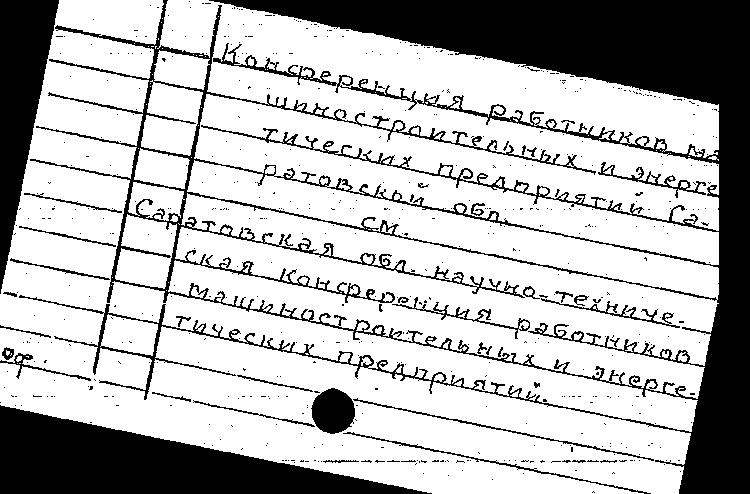 Конференция работников ма
шиностроительных и энерге
тических предприятий Са-
ратовской обл.
см.
Саратовская обл. научно-техниче-
ская конференция работников
машиностроительных и энерге-
тических предприятий.
оф.